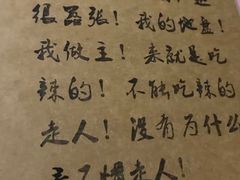 很嚣張！我的地盘！
我做主！来就是吃
辣的！不能吃辣的
走人！没有为什么
走人！